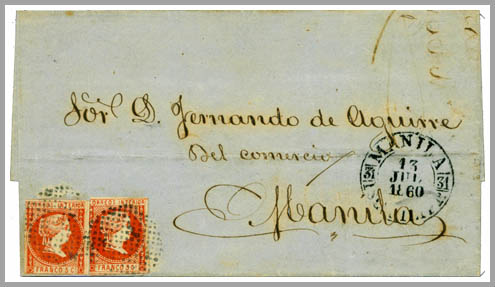 Sōr D. Fernando de Aguirre
Del comercio
Manila
MANILA
13
JUL
1860
31 31
CORREOS INTERIOR
FRANCO
CORREOS INTERIOR
FRANCO